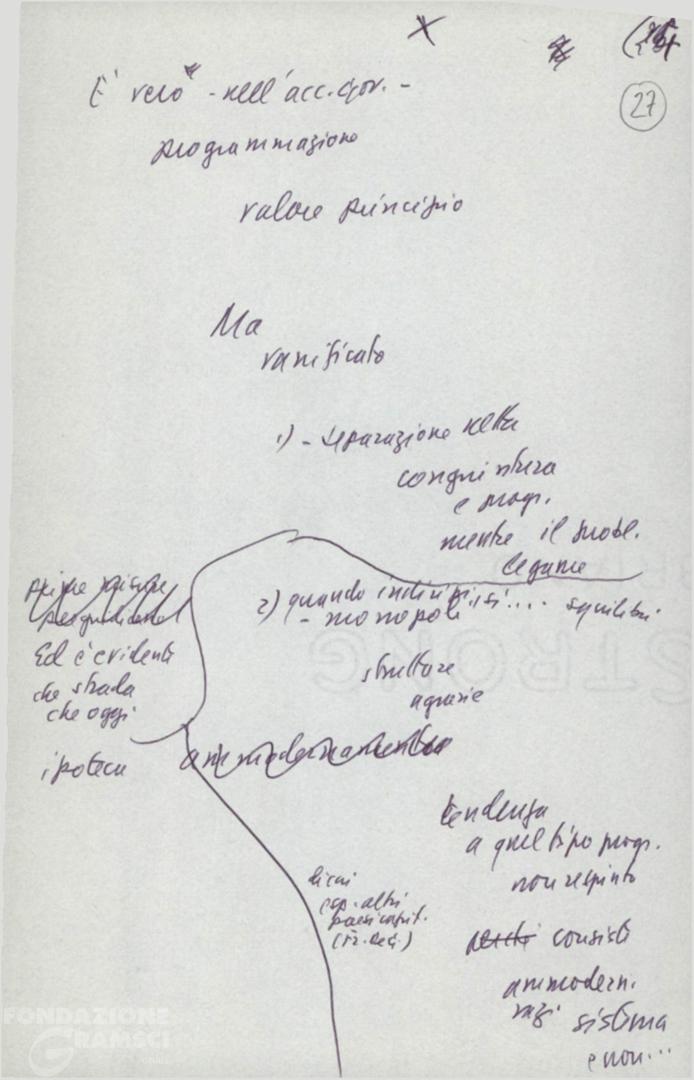 27
E' vero - nell'acc. gov. -
programmazione
valore principio
Ma
vanificato
1) - separazione nella
congiuntura
e progr.
mentre il probl.
legame
2) quando indirizzi
- monopoli
squilibri
strutture
agrarie
ammodernamento
Ed è evidente
che strada
che oggi
ipoteca
tendenza
a quel tipo progr.
non respinto
perché consiste
ammodern.
sistema
e non...
di cui
esp. altri
paesi capit.
STRONG
FONDAZIONE
GRAMSCI